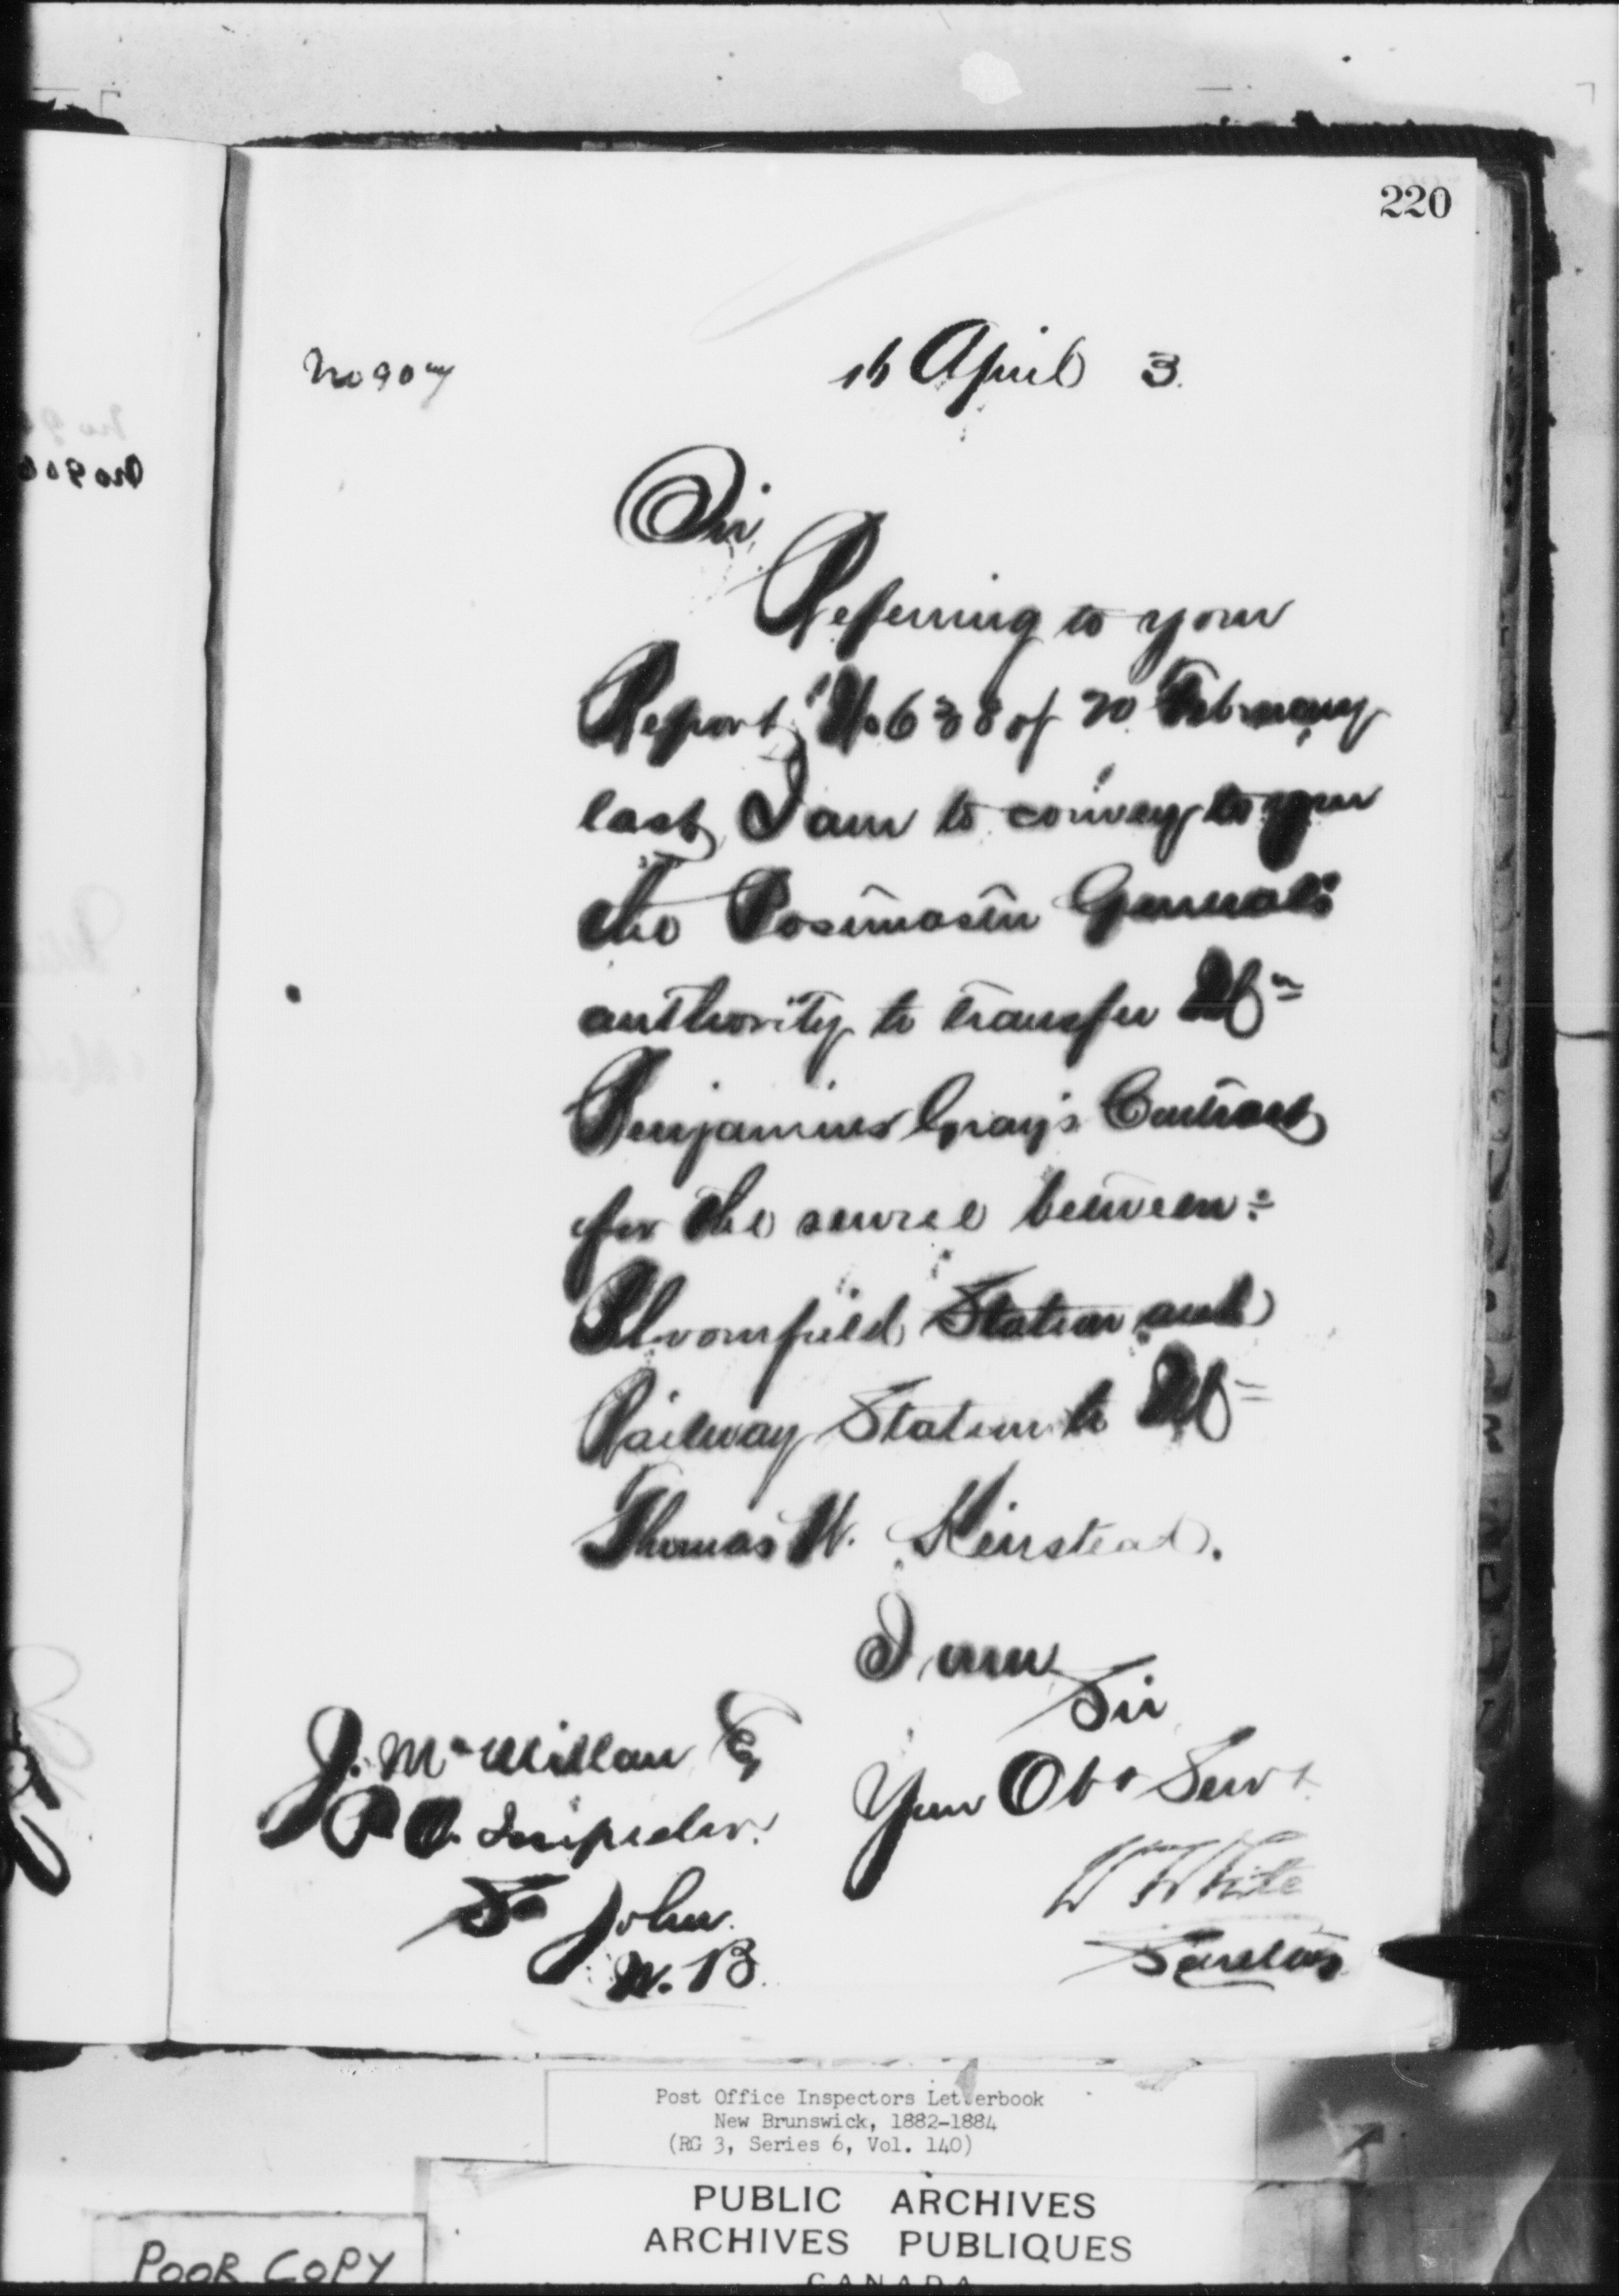 220
No 907
16 April 3.
Sir,
Referring to your
Report, No 638 of 20 February
last, I am to convey to you
the Postmaster General's
authority to transfer Mr
Benjamin Gray's Contract
for the service between
Bloomfield Station and
Railway Station to Mr
Thomas W. Keirstead.
I am
Sir
Your Obt Servt
W White
Secretary
J. McMillan Esq
P. O. Inspector.
St John
N. B.
Post Office Inspectors Letterbook
New Brunswick, 1882-1884
(RG 3, Series 6, Vol. 140)
PUBLIC ARCHIVES
ARCHIVES PUBLIQUES
CANADA
POOR COPY